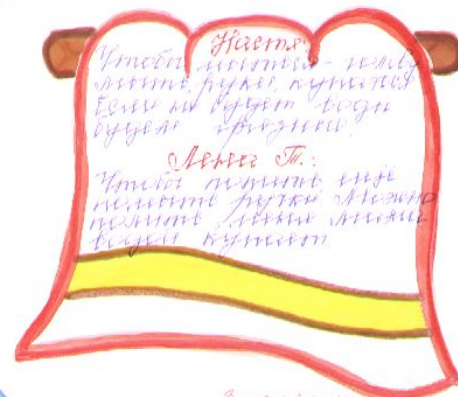 Настя:
Чтобы мыться -
мыть руки, купаться
Если не будет воды
будем грязные.
Лена Т.:
Чтобы попить ещё
помыть ручки. Можно
полить, меня мама
водой купает